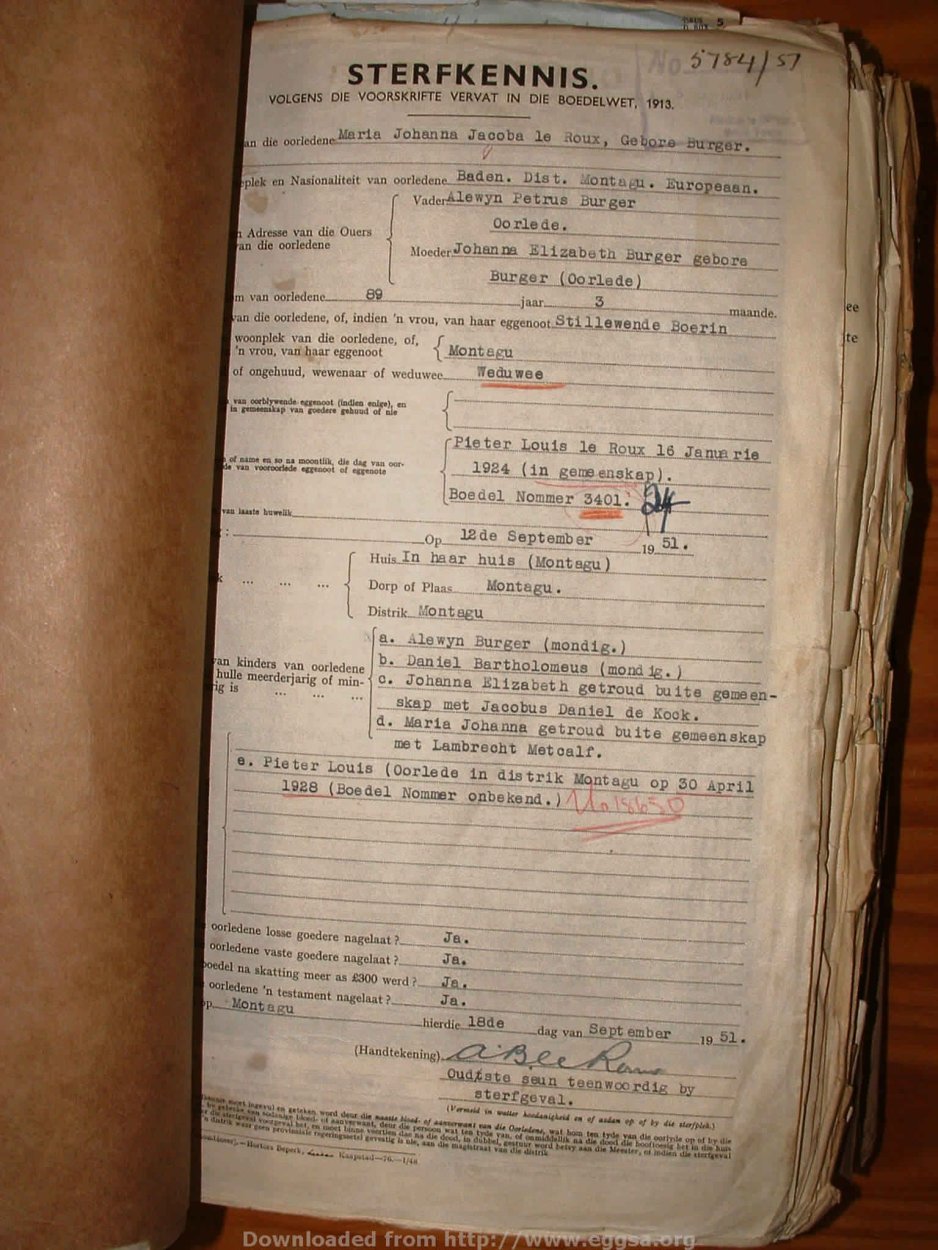 5
No. 5784/51
STERFKENNIS.
VOLGENS DIE VOORSKRIFTE VERVAT IN DIE BOEDELWET, 1913.
an die oorledene Maria Johanna Jacoba le Roux, Gebore Burger.
eplek en Nasionaliteit van oorledene Baden. Dist. Montagu. Europeaan.
Vader Alewyn Petrus Burger
Oorlede.
n Adresse van die Ouers
van die oorledene
Moeder Johanna Elizabeth Burger gebore
Burger (Oorlede)
m van oorledene 89 jaar 3 maande.
van die oorledene, of, indien 'n vrou, van haar eggenoot Stillewende Boerin
woonplek van die oorledene, of,
'n vrou, van haar eggenoot Montagu
of ongehuud, wewenaar of weduwee Weduwee
van oorblywende eggenoot (indien enige), en
in gemeenskap van goedere gehoud of nie
Pieter Louis le Roux 16 Januarie
of name en so na moontlik, die dag van oor-
de van vooroorlede eggenoot of eggenote
1924 (in gemeenskap).
Boedel Nommer 3401. 24
van laaste huwelik
Op 12de September 19 51.
Huis In haar huis (Montagu)
k ... ... ... Dorp of Plaas Montagu.
Distrik Montagu
a. Alewyn Burger (mondig.)
van kinders van oorledene
b. Daniel Bartholomeus (mondig.)
hulle meerderjarig of min-
c. Johanna Elizabeth getroud buite gemeen-
rig is ... ... ...
skap met Jacobus Daniel de Kock.
d. Maria Johanna getroud buite gemeenskap
met Lambrecht Metcalf.
e. Pieter Louis (Oorlede in distrik Montagu op 30 April
1928 (Boedel Nommer onbekend.) No 18650
oorledene losse goedere nagelaat? Ja.
oorledene vaste goedere nagelaat? Ja.
boedel na skatting meer as £300 werd? Ja.
oorledene 'n testament nagelaat? Ja.
op Montagu hierdie 18de dag van September 19 51.
(Handtekening) A B le Roux
Oudste seun teenwoordig by
sterfgeval.
(Vermeld in watter hoedanigheid en of asdan op of by die sterfplek.)
Hortors Beperk, Kaapstad—76.—1/48
Downloaded from http://www.eggsa.org
ee
te